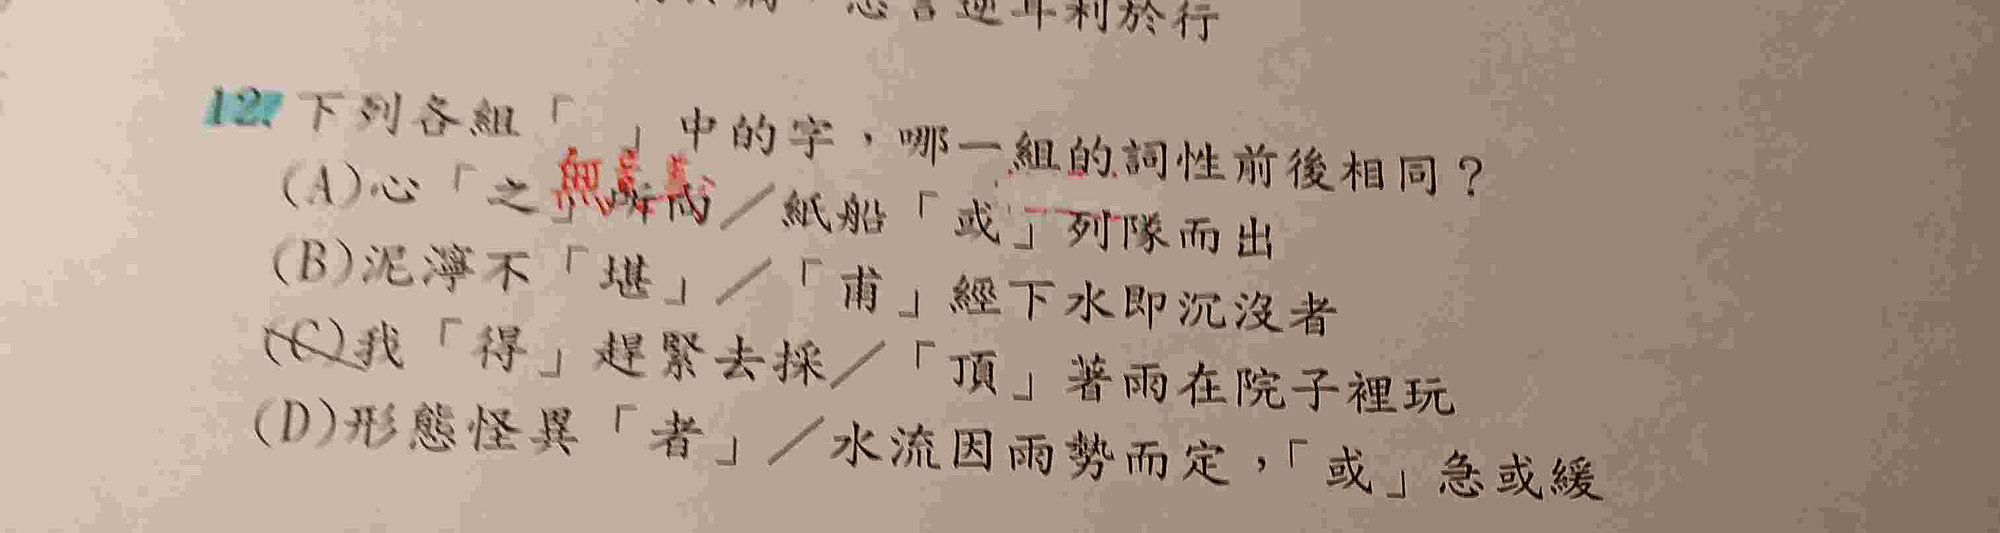 言逆耳利於行
12. 下列各組「　」中的字，哪一組的詞性前後相同？
(A)心「之」所向／紙船「或」列隊而出
(B)泥濘不「堪」／「甫」經下水即沉沒者
(C)我「得」趕緊去採／「頂」著雨在院子裡玩
(D)形態怪異「者」／水流因雨勢而定，「或」急或緩